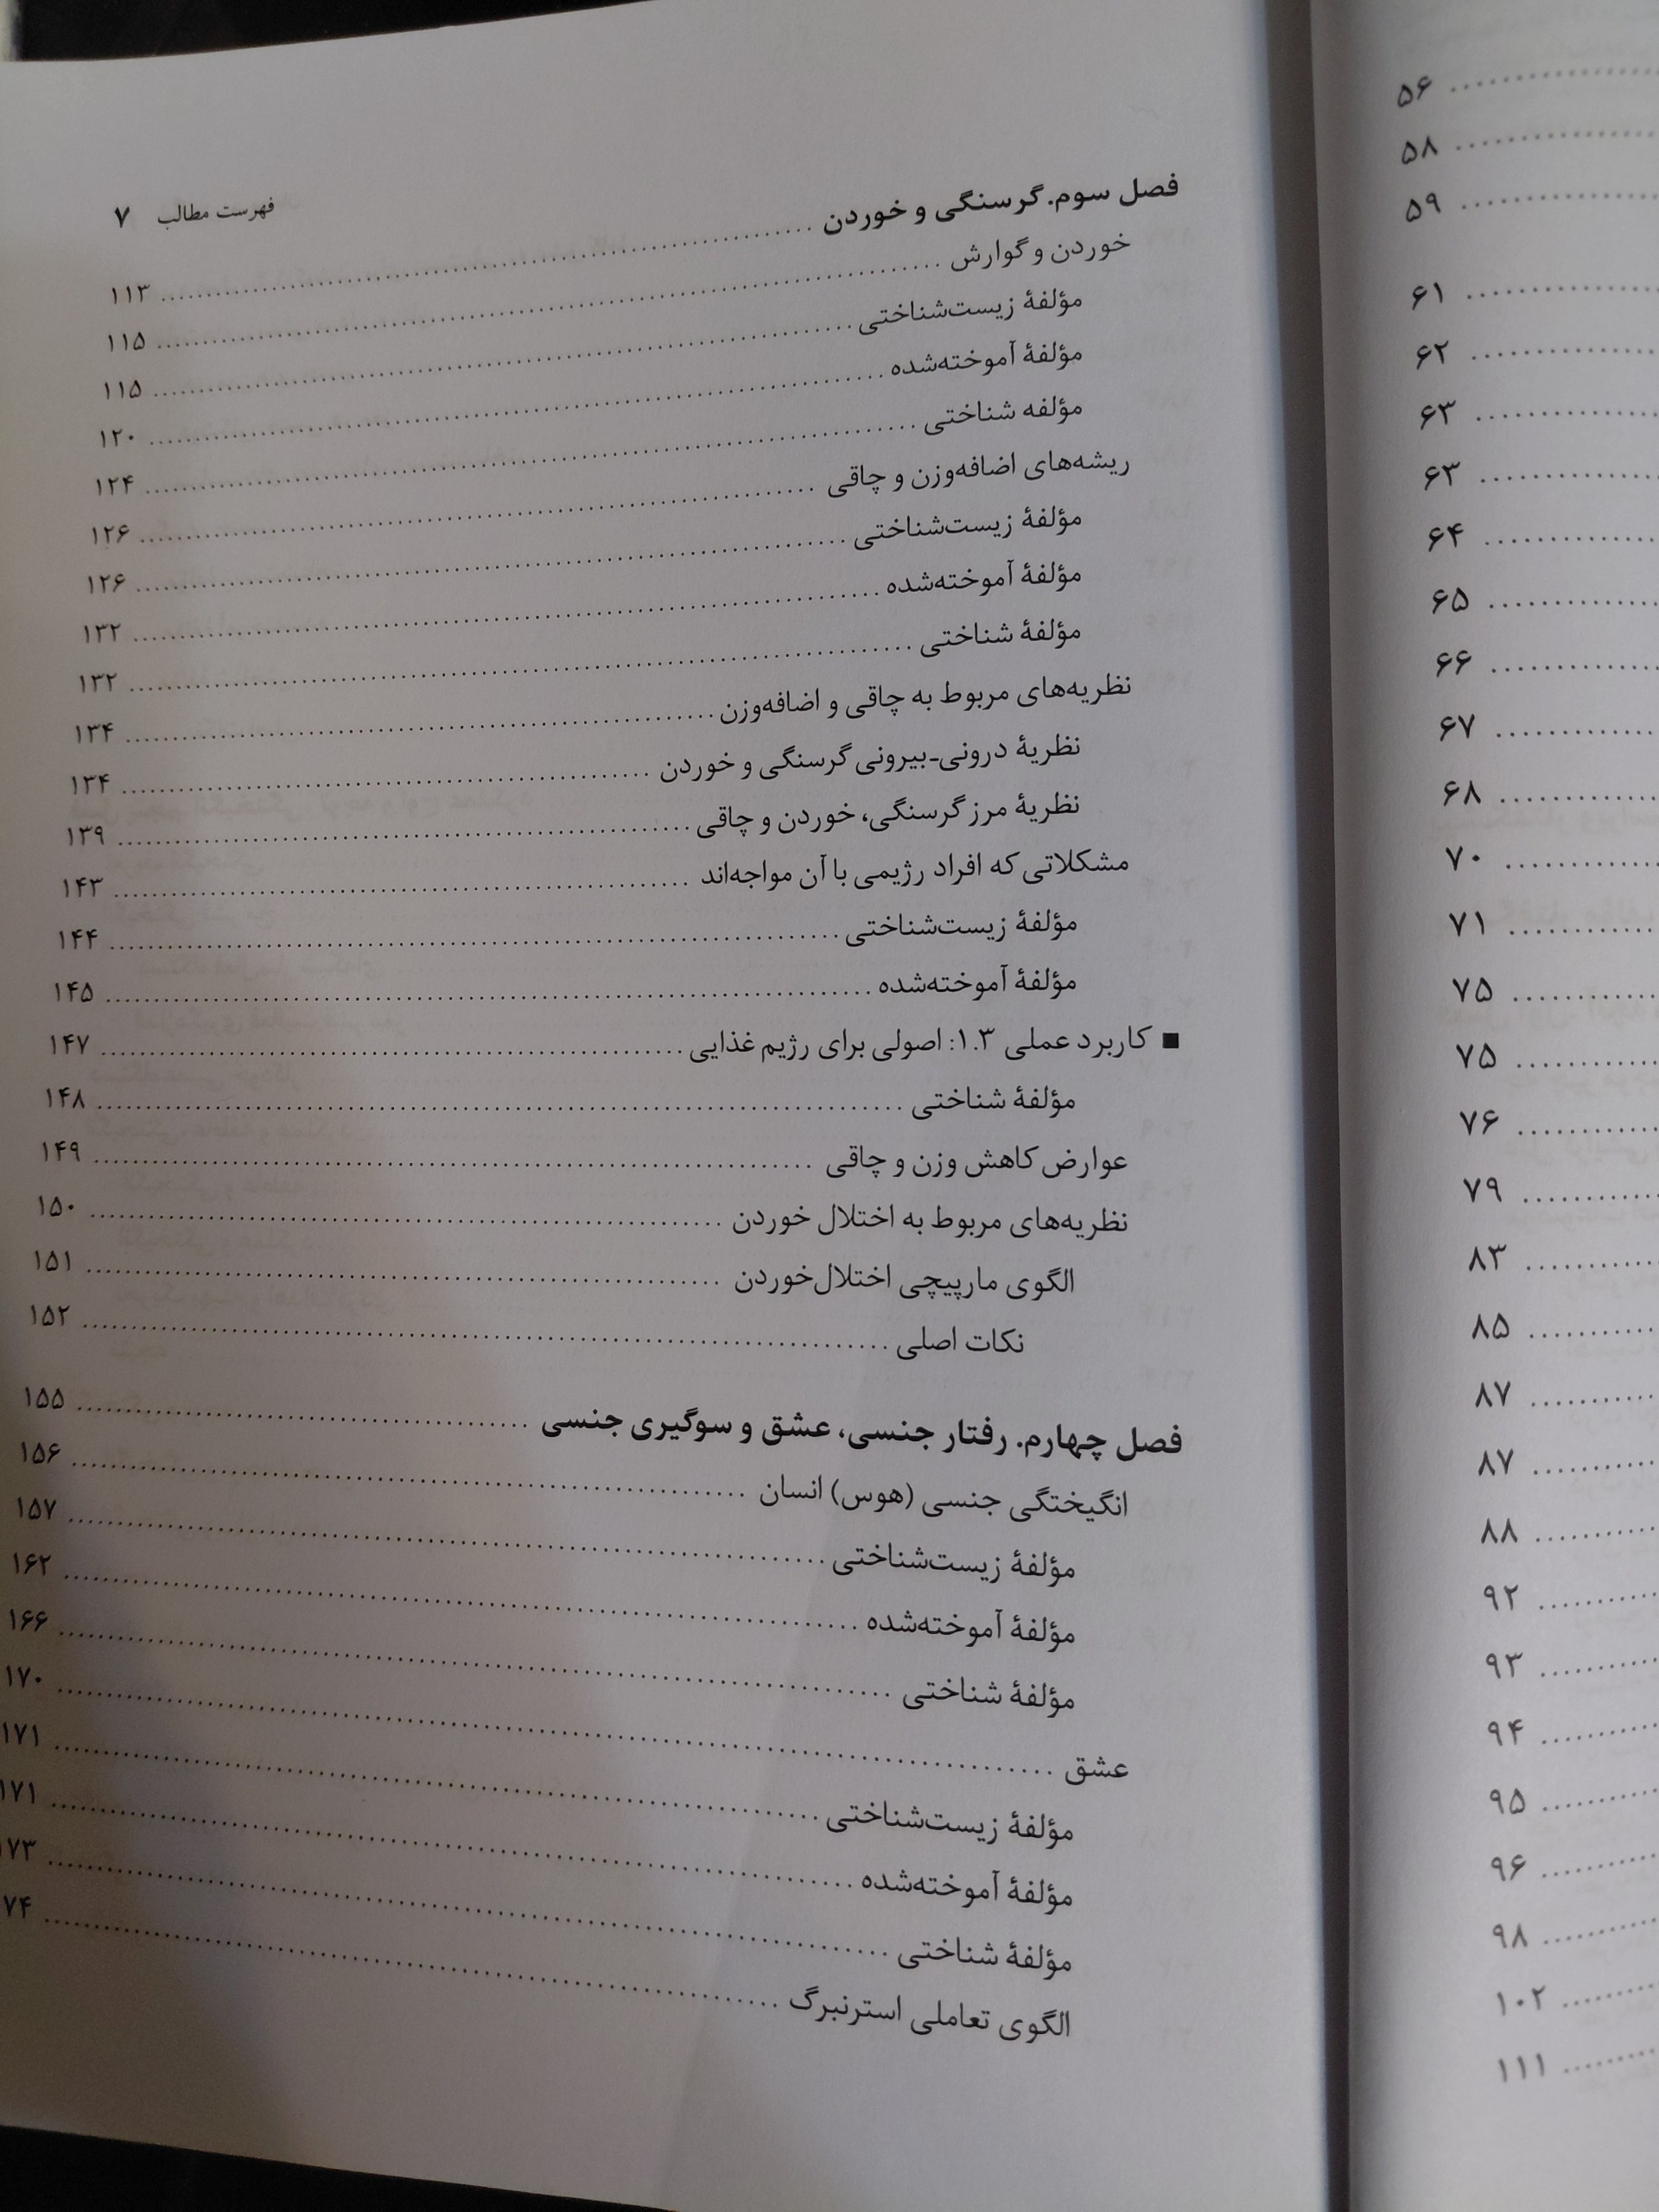 فهرست مطالب ۷
فصل سوم. گرسنگی و خوردن ۱۱۳
خوردن و گوارش ۱۱۵
مؤلفهٔ زیست‌شناختی ۱۱۵
مؤلفهٔ آموخته‌شده ۱۲۰
مؤلفه شناختی ۱۲۴
ریشه‌های اضافه‌وزن و چاقی ۱۲۶
مؤلفهٔ زیست‌شناختی ۱۲۶
مؤلفهٔ آموخته‌شده ۱۳۲
مؤلفهٔ شناختی ۱۳۲
نظریه‌های مربوط به چاقی و اضافه‌وزن ۱۳۴
نظریهٔ درونی-بیرونی گرسنگی و خوردن ۱۳۴
نظریهٔ مرز گرسنگی، خوردن و چاقی ۱۳۹
مشکلاتی که افراد رژیمی با آن مواجه‌اند ۱۴۳
مؤلفهٔ زیست‌شناختی ۱۴۴
مؤلفهٔ آموخته‌شده ۱۴۵
■ کاربرد عملی ۱.۳: اصولی برای رژیم غذایی ۱۴۷
مؤلفهٔ شناختی ۱۴۸
عوارض کاهش وزن و چاقی ۱۴۹
نظریه‌های مربوط به اختلال خوردن ۱۵۰
الگوی مارپیچی اختلال‌خوردن ۱۵۱
نکات اصلی ۱۵۲
فصل چهارم. رفتار جنسی، عشق و سوگیری جنسی ۱۵۵
انگیختگی جنسی (هوس) انسان ۱۵۶
مؤلفهٔ زیست‌شناختی ۱۵۷
مؤلفهٔ آموخته‌شده ۱۶۲
مؤلفهٔ شناختی ۱۶۶
عشق ۱۷۰
مؤلفهٔ زیست‌شناختی ۱۷۱
مؤلفهٔ آموخته‌شده ۱۷۱
مؤلفهٔ شناختی ۱۷۳
الگوی تعاملی استرنبرگ ۷۴
۵۶
۵۸
۵۹
۶۱
۶۲
۶۳
۶۳
۶۴
۶۵
۶۶
۶۷
۶۸
۷۰
۷۱
۷۵
۷۵
۷۶
۷۹
۸۳
۸۵
۸۷
۸۷
۸۸
۹۲
۹۳
۹۴
۹۵
۹۶
۹۸
۱۰۲
۱۱۱